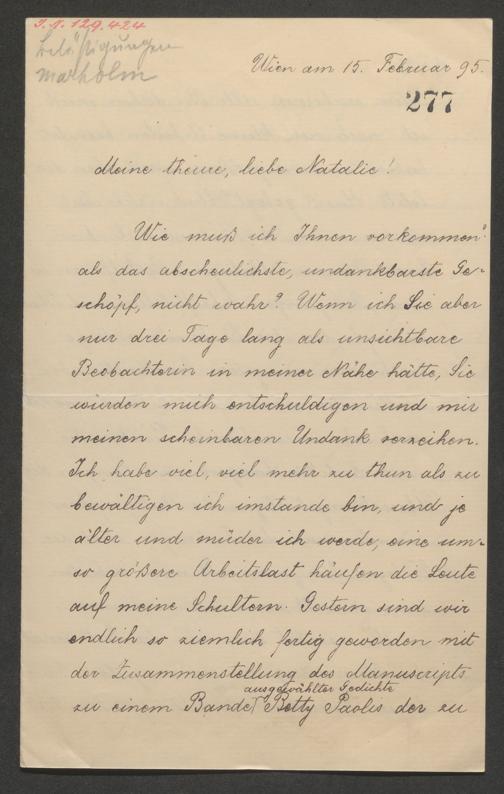 J. N. 129.424
Belästigungen
Marholm
Wien am 15. Februar 95.
277
Meine theure, liebe Natalie!
Wie muß ich Ihnen vorkommen?
als das abscheulichste, undankbarste Ge-
schöpf, nicht wahr? Wenn ich Sie aber
nur drei Tage lang als unsichtbare
Beobachterin in meiner Nähe hätte, Sie
würden mich entschuldigen und mir
meinen scheinbaren Undank verzeihen.
Ich habe viel, viel mehr zu thun als zu
bewältigen ich imstande bin, und je
älter und müder ich werde, eine um-
so größere Arbeitslast häufen die Leute
auf meine Schultern. Gestern sind wir
endlich so ziemlich fertig geworden mit
der Zusammenstellung des Manuscripts
ausgewählter Gedichte
zu einem Bande Betty Paolis der zu